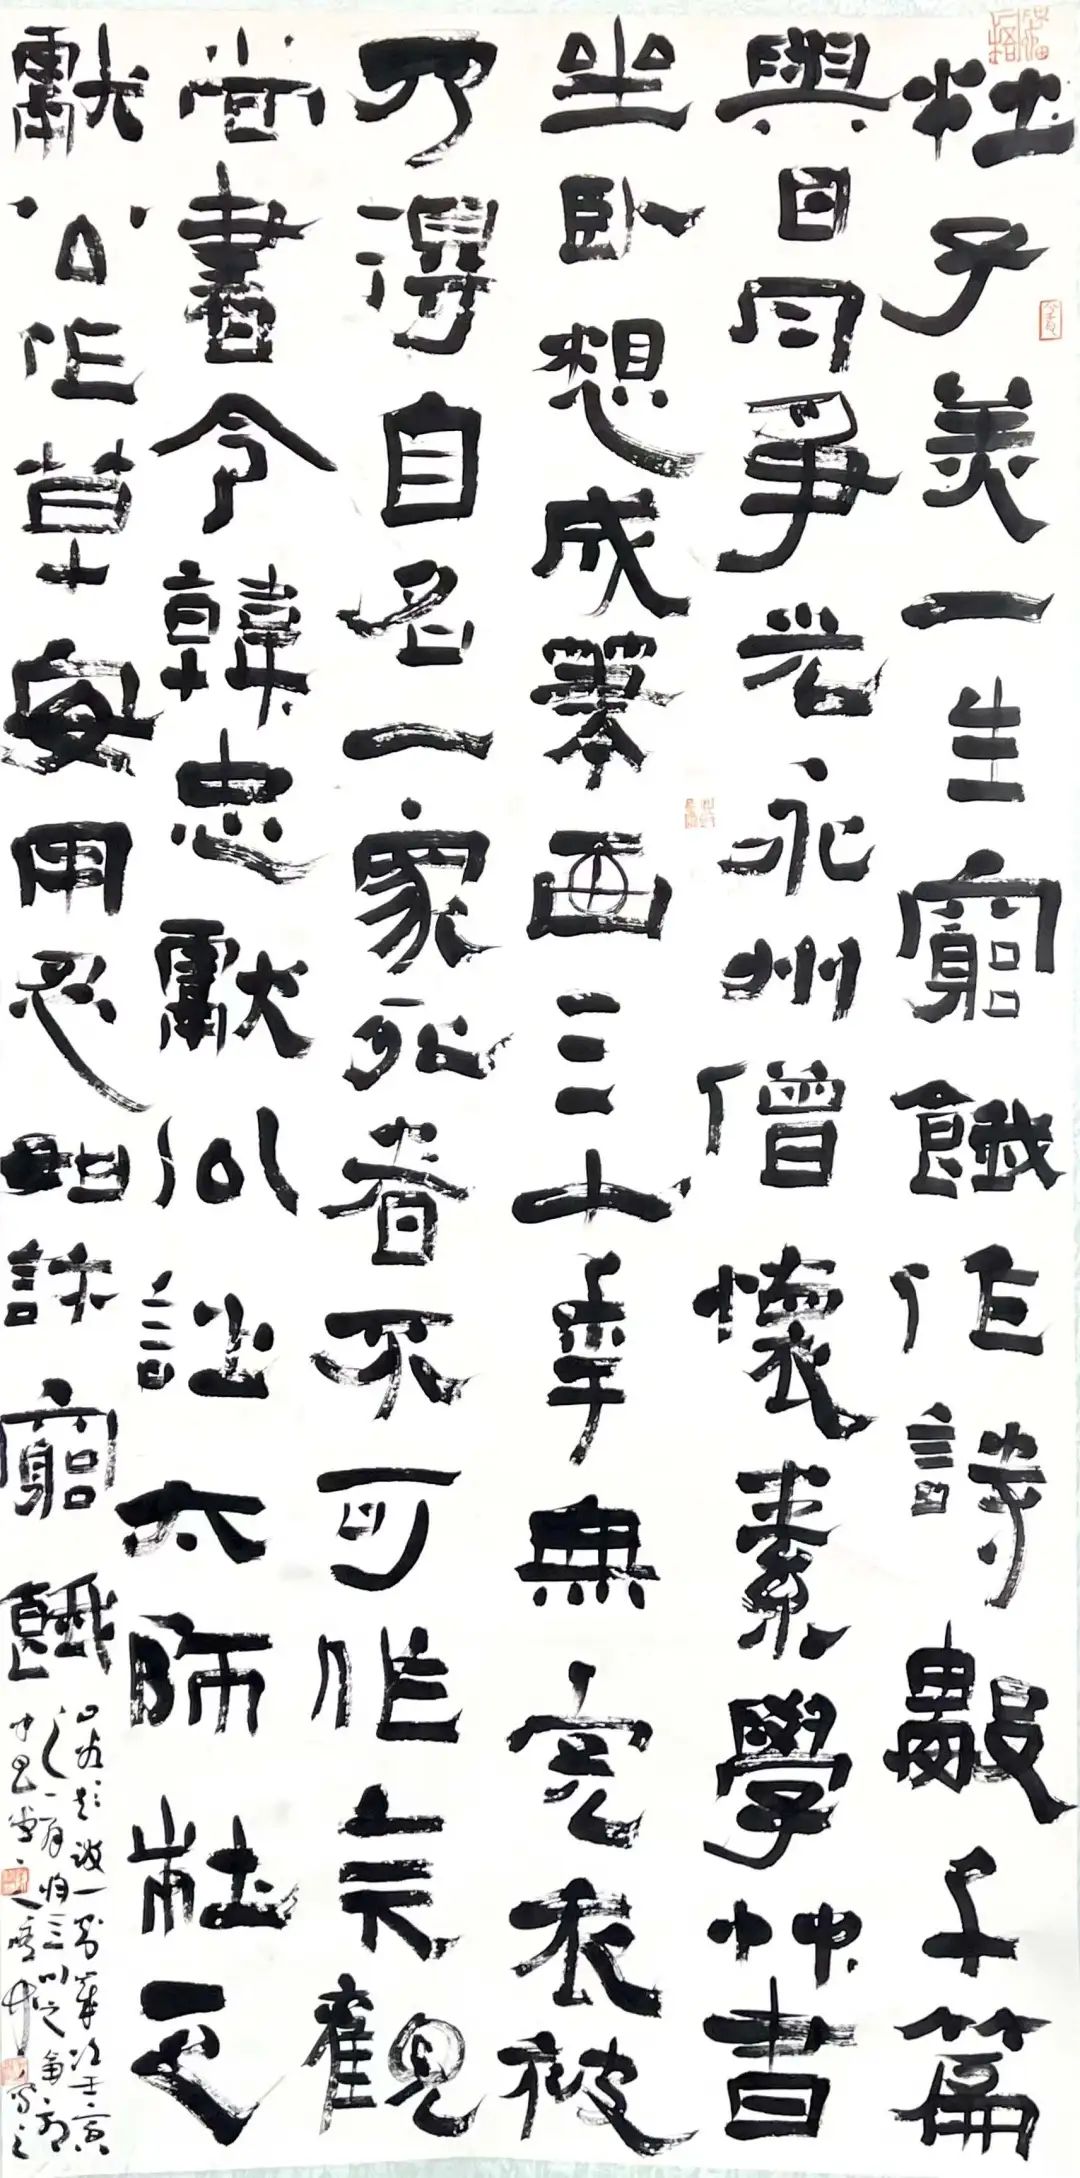 杜子美一生窮餓作詩數千篇
與日月爭光永州僧懷素學艸書
坐臥想成筆画三十年無完衣被
乃得自名一家死者不可作觀
尚書令韓忠獻公太師杜正
獻公作草安用忍如許窮餓
歲次壬寅